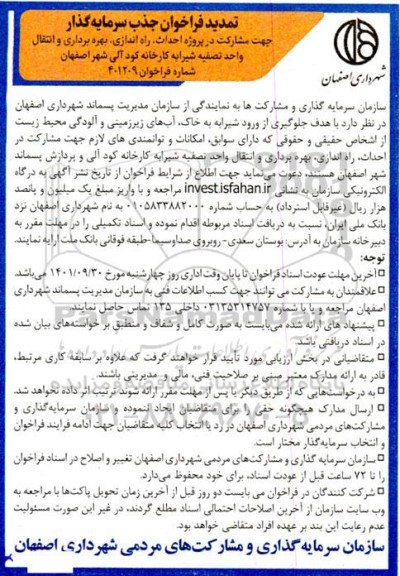 تمدید فراخوان جذب سرمایه‌گذار
جهت مشارکت در پروژه احداث، راه اندازی، بهره برداری و انتقال
واحد تصفیه شیرابه کارخانه کود آلی شهر اصفهان
شماره فراخوان ۴۰۱۲۰۹
شهرداری اصفهان
سازمان سرمایه گذاری و مشارکت ها به نمایندگی از سازمان مدیریت پسماند شهرداری اصفهان
در نظر دارد با هدف جلوگیری از ورود شیرابه به خاک، آب‌های زیرزمینی و آلودگی محیط زیست
از اشخاص حقیقی و حقوقی که دارای سوابق، امکانات و توانمندی های لازم جهت مشارکت در
احداث، راه اندازی، بهره برداری و انتقال واحد تصفیه شیرابه کارخانه کود آلی و پردازش پسماند
شهر اصفهان هستند، دعوت می‌نماید جهت اطلاع از شرایط فراخوان از تاریخ نشر آگهی به درگاه
الکترونیکی سازمان به نشانی invest.isfahan.ir مراجعه و با واریز مبلغ یک میلیون و پانصد
هزار ریال (غیرقابل استرداد) به حساب شماره ۰۱۰۵۸۳۳۸۸۲۰۰۰ به نام شهرداری اصفهان نزد
بانک ملی ایران، نسبت به دریافت اسناد مربوطه اقدام نموده و اسناد تکمیلی را در مهلت مقرر به
دبیرخانه سازمان به آدرس: بوستان سعدی- روبروی صداوسیما-طبقه فوقانی بانک ملت ارایه نمایند.
توجه:
آخرین مهلت عودت اسناد فراخوان تا پایان وقت اداری روز چهارشنبه مورخ ۱۴۰۱/۰۹/۳۰ می‌باشد.
علاقمندان به مشارکت می توانند جهت کسب اطلاعات فنی به سازمان مدیریت پسماند شهرداری
اصفهان مراجعه و یا با شماره ۰۳۱۳۵۳۱۴۷۵۷ داخلی ۱۳۵ تماس حاصل نمایند.
پیشنهاد های ارائه شده می‌بایست به صورت کامل و شفاف و منطبق بر خواسته‌های بیان شده
در اسناد دریافتی باشد.
متقاضیانی در بخش ارزیابی مورد تأیید قرار خواهند گرفت که علاوه بر سابقه کاری مرتبط،
قادر به ارائه مدارک معتبر مبنی بر صلاحیت فنی، مالی و مدیریتی باشند.
به درخواست‌هایی که از طریق دیگر یا پس از مهلت مقرر ارائه شوند ترتیب اثر داده نخواهد شد.
ارسال مدارک هیچگونه حقی را برای متقاضیان ایجاد ننموده و سازمان سرمایه‌گذاری و
مشارکت‌های مردمی شهرداری اصفهان در رد یا انتخاب کلیه متقاضیان جهت ادامه فرایند فراخوان
و انتخاب سرمایه‌گذار مختار است.
سازمان سرمایه گذاری و مشارکت‌های مردمی شهرداری اصفهان تغییر و اصلاح در اسناد فراخوان
را تا ۷۲ ساعت قبل از عودت اسناد، برای خود محفوظ می‌دارد.
شرکت کنندگان در فراخوان می بایست دو روز قبل از آخرین زمان تحویل پاکت‌ها با مراجعه به
وب سایت سازمان از آخرین اصلاحات احتمالی اسناد مطلع گردند، در غیر این صورت مسئولیت
عدم رعایت این بند بر عهده افراد متقاضی خواهد بود.
سازمان سرمایه‌گذاری و مشارکت‌های مردمی شهرداری اصفهان